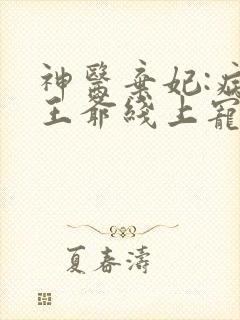 神醫棄妃:病
王爺綫上寵
夏春濤